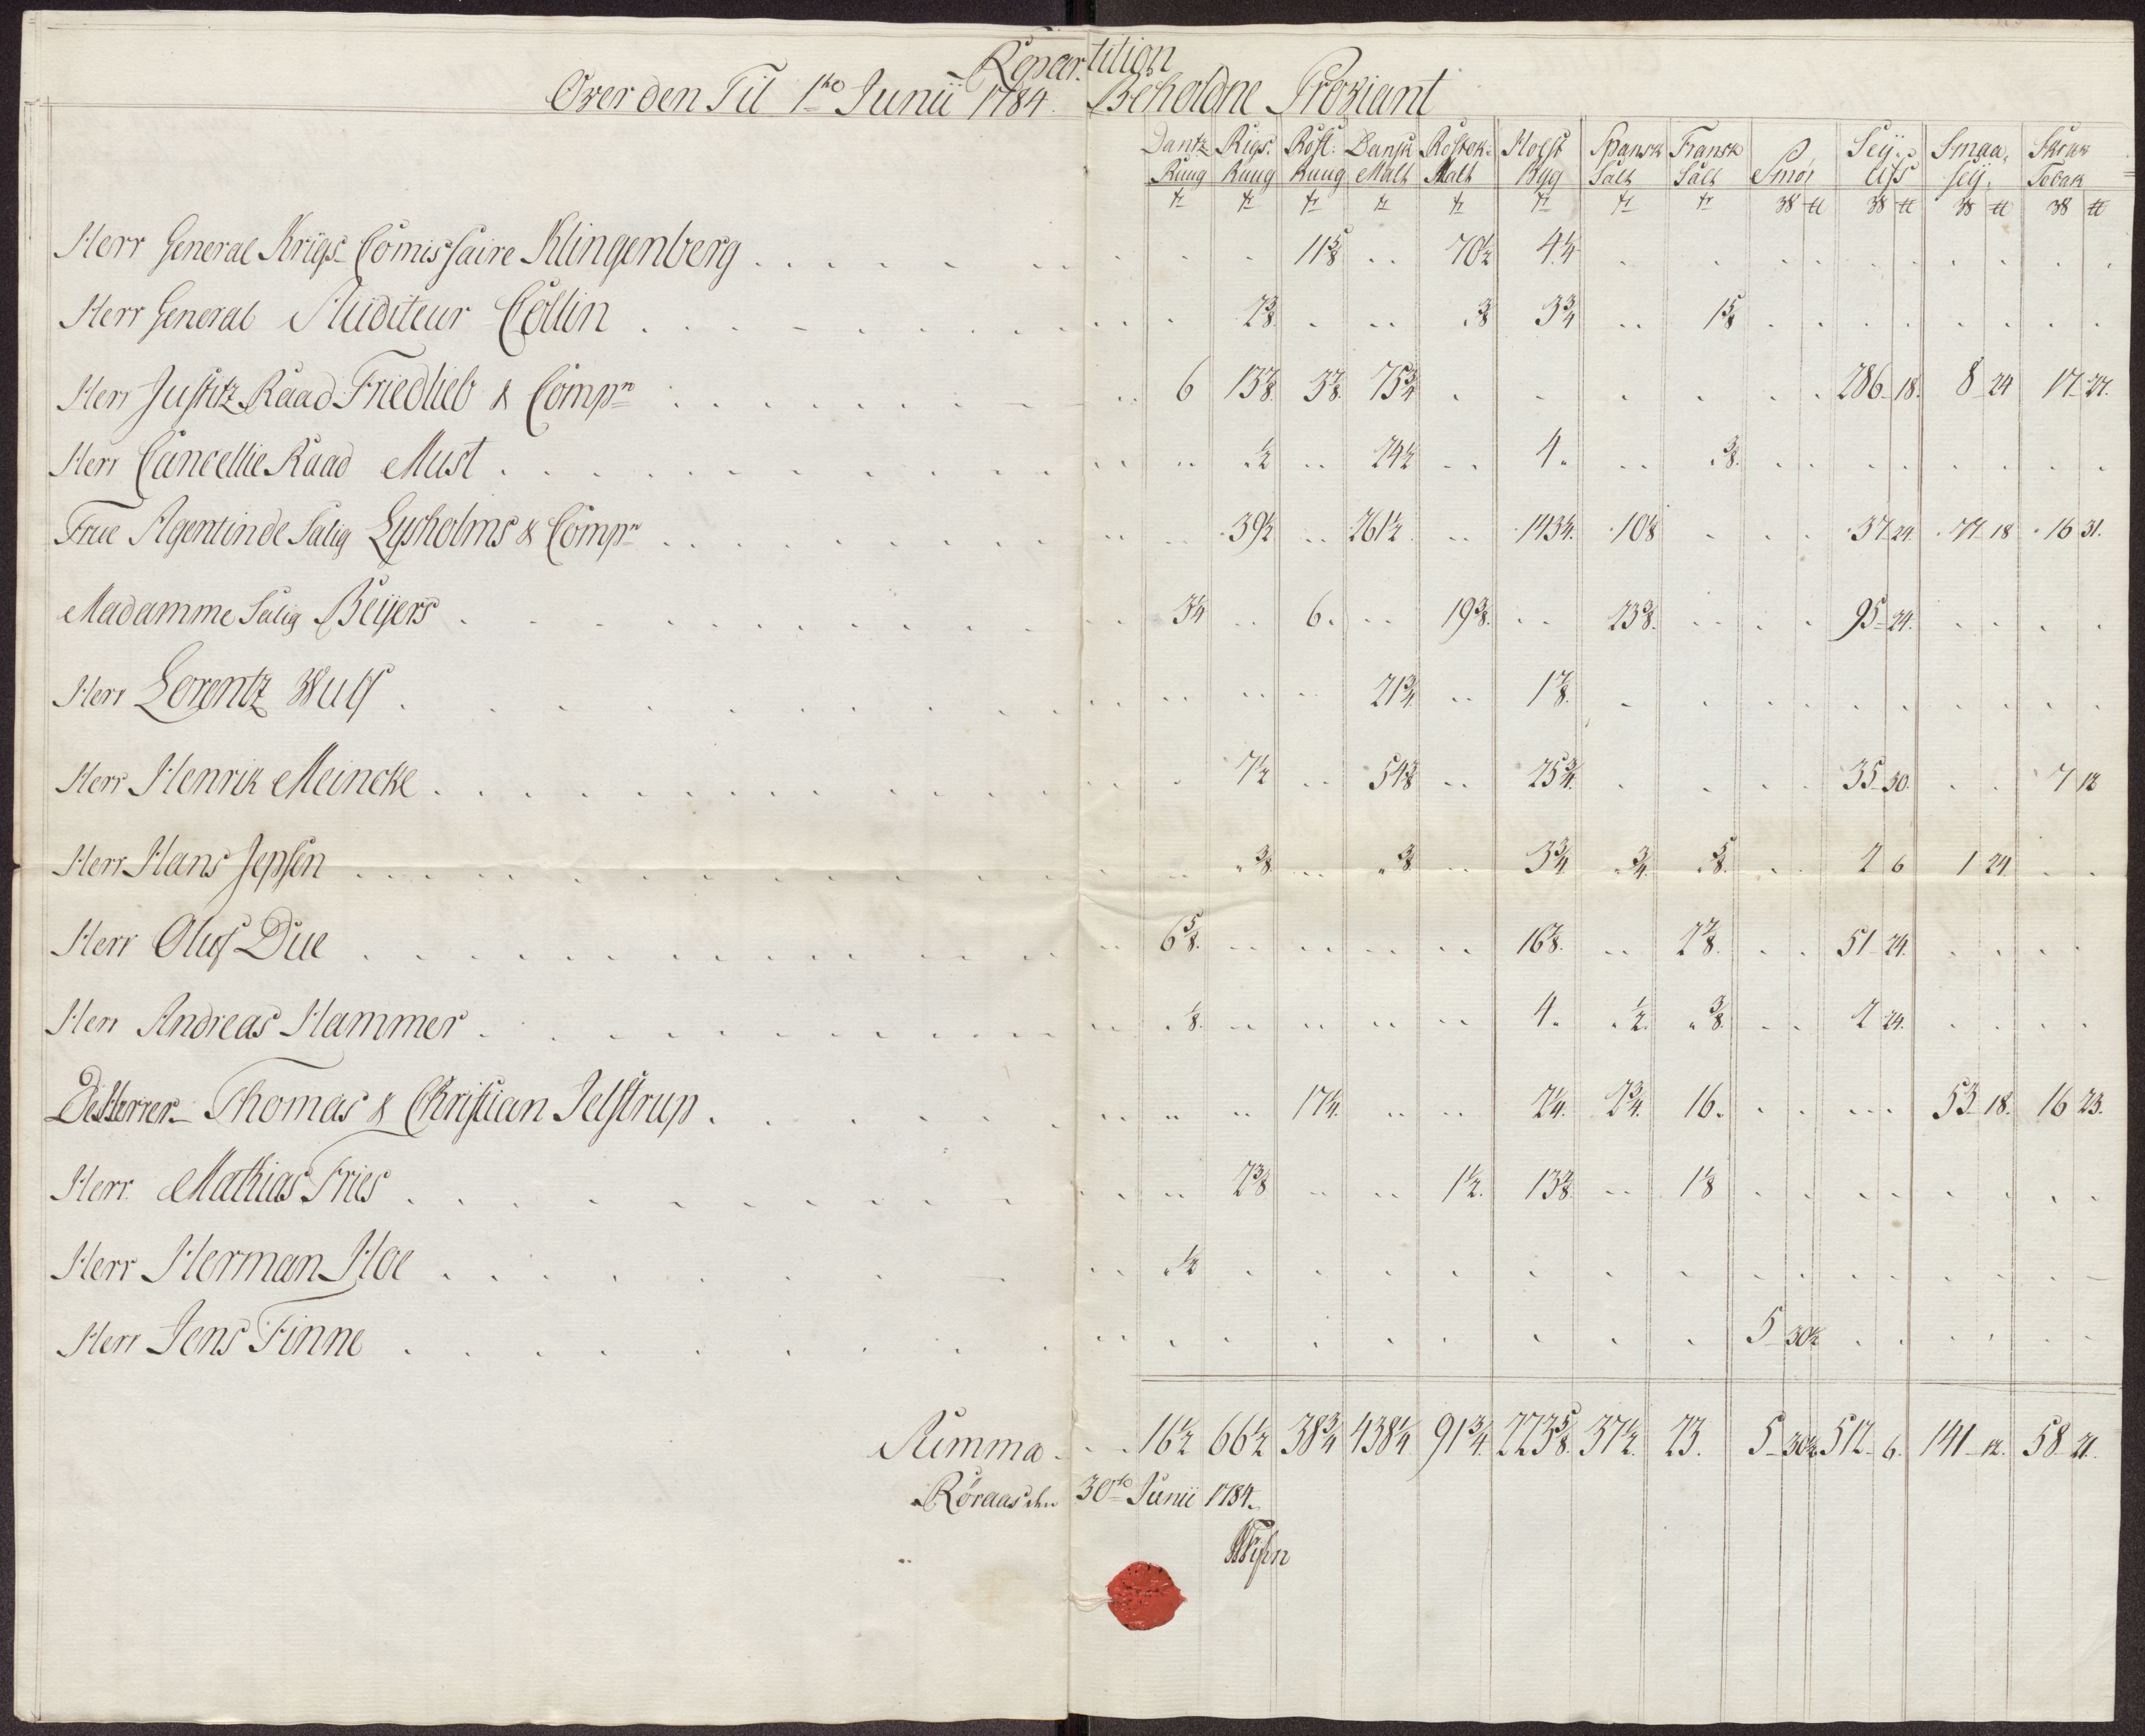 Repartition
Over den Til 1ho Junii 1784. Beholdne Proviant
Dantz Rigs. Rost: Dansk Rostok. Holst Spansk Fransk Seÿ. Smaa
Ruug Ruug Ruug Malt Malt Byg Salt Salt Smør Seÿ. Tobak
Herr General Krigs-Comissaire Klingenberg . . . 11 70½ 4¼
Herr General Auditeur Collin . . . 2⅜ ⅜ 3¾ 1⅝
Herr Justitz Raad Friedlieb & Compn 6 13⅞ 3⅞ 75¾ 286 18. 8 24 17 27.
Herr Cancellie Raad Must . . . ½ 24½ 4. ⅜.
Frue Agentinde Salig Lysholms & Compn 39½ 261½ 143¼. 10⅛ 37 24. 77 18 16 31.
Madamme Salig Beÿers . . . 3¼ 6. 19⅜. 23⅜. 95 24.
Herr Lorentz Wulf . . . 21¾ 1⅞.
Herr Henrik Meincke . . . 7½ 54⅜ 25¾. 35 30. 7 12
Herr Hans Jepsen . . . ⅜. ⅜ 3¾ ¾. ⅝. 2 6 1 24.
Herr Oluf Due . . . 6⅝. 16⅞. 2⅞. 51 24.
Herr Andreas Hammer . . . ⅛. 4. ½. ⅜. 2 24.
De Herrer Thomas & Christian Jelstrup . . . 17¼. 2¼. 2¾. 16. 53 18. 16 23.
Herr Mathias Fries . . . 2⅜ 1½. 13⅜. 1⅛
Herr Herman Hoe . . . ½
Herr Jens Finne . . . 5 30½
Summa . . . 16½ 66½ 38¾ 438¼ 91¾. 223⅝. 37½. 23. 5 30½ 512 6. 141 12. 58 21.
Röraas den 30te Junii 1784.